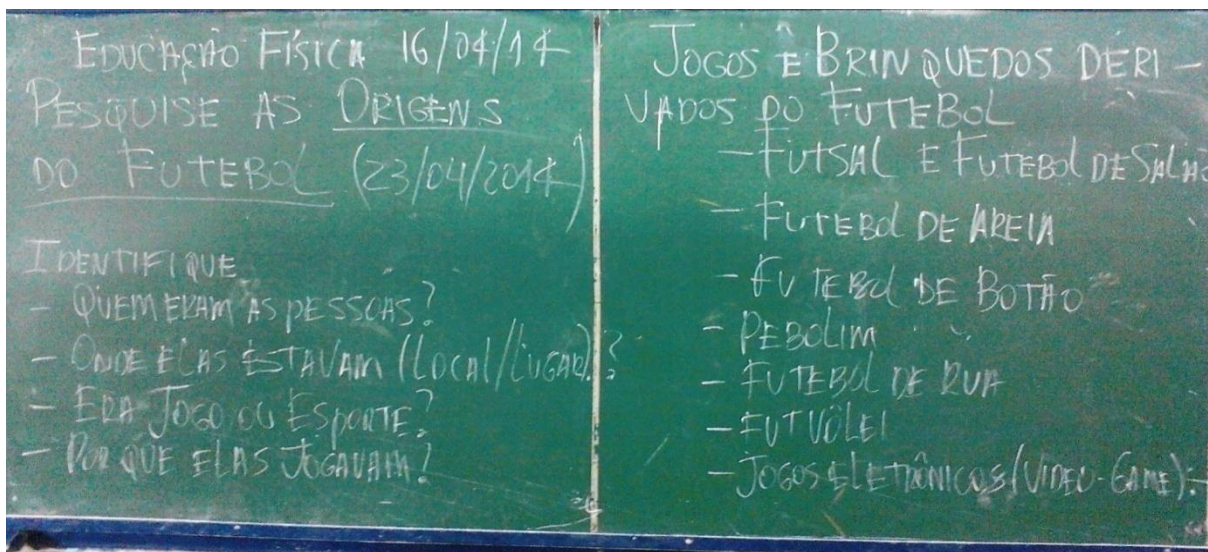 EDUCAÇÃO FÍSICA 16/04/14
PESQUISE AS ORIGENS
DO FUTEBOL (23/04/2014)
IDENTIFIQUE
- QUEM ERAM AS PESSOAS?
- ONDE ELAS ESTAVAM (LOCAL/LUGAR)?
- ERA JOGO OU ESPORTE?
- POR QUE ELAS JOGAVAM?
JOGOS E BRINQUEDOS DERI-
VADOS DO FUTEBOL
- FUTSAL E FUTEBOL DE SALÃO
- FUTEBOL DE AREIA
- FUTEBOL DE BOTÃO
- PEBOLIM
- FUTEBOL DE RUA
- FUTVÔLEI
- JOGOS ELETRÔNICOS (VIDEO-GAME):-